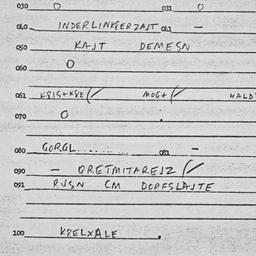 030 O 031 O
040 INDERLINKGERZAJT 041 —
050 KAJT DEMESN
060 O
061 MOGT HALD
070 O
080 GORGL........... 081 —
090 — ORETMITAREJZ
091 RJSN CM DOPFSLAJTE
100 KPELXALE